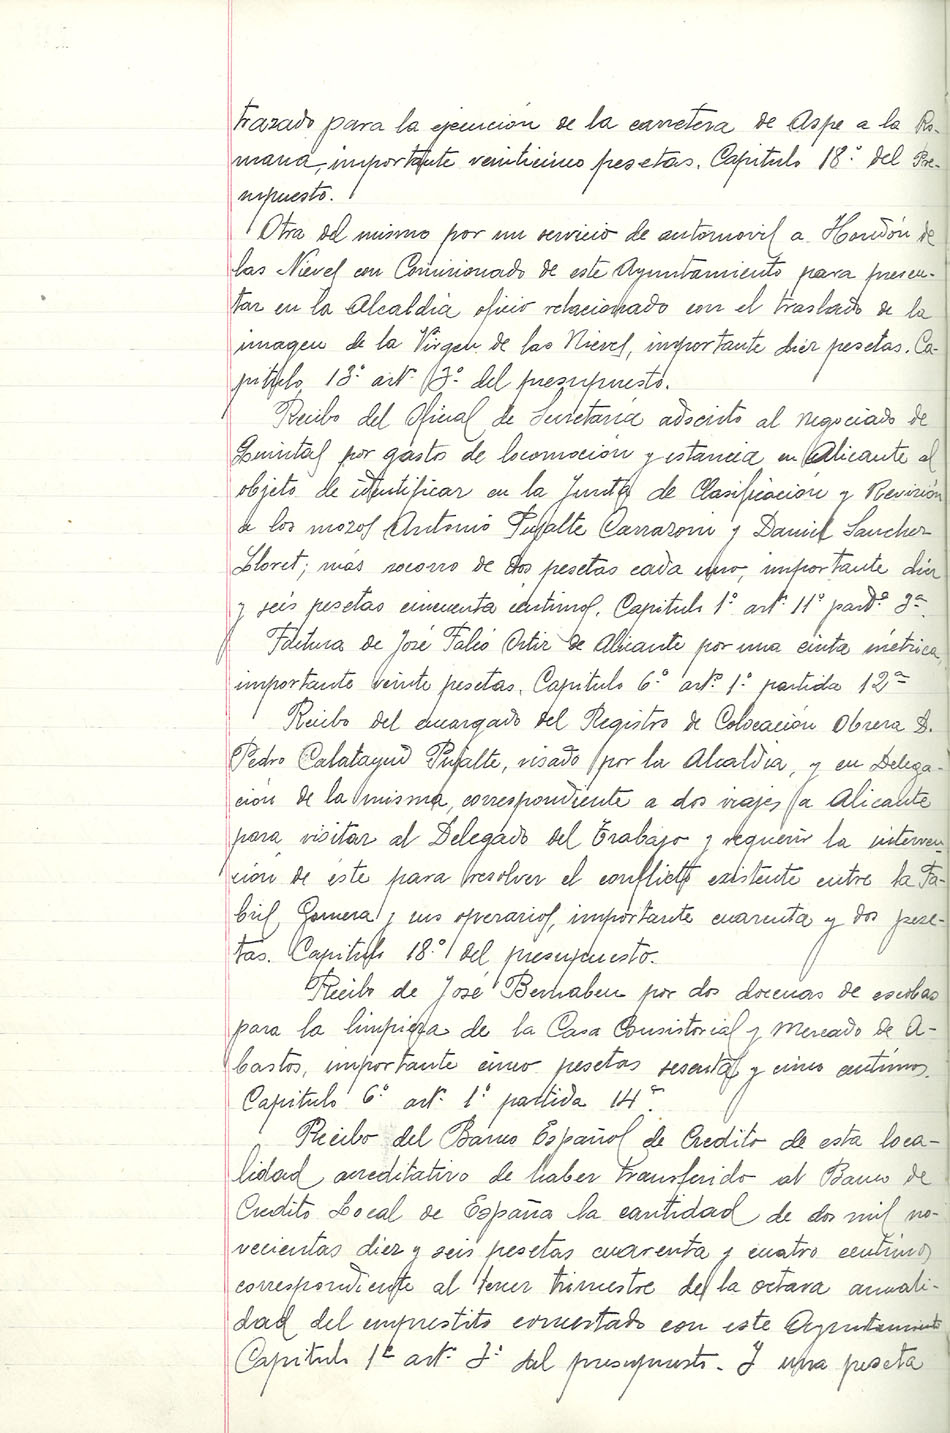 trazado para la ejecución de la carretera de Aspe a la Ro-
mana, importante veinticinco pesetas. Capitulo 18.º del Pre-
supuesto.
Otra del mismo por un servicio de automovil a Hondón de
las Nieves con Comisionado de este Ayuntamiento para presen-
tar en la Alcaldia oficio relacionado con el traslado de la
imagen de la Virgen de las Nieves, importante diez pesetas. Ca-
pitulo 13.º art.º 3.º del presupuesto.
Recibo del Oficial de Secretaria adscrito al negociado de
Quintas por gastos de locomoción y estancia en Alicante al
objeto de identificar en la Junta de Clasificación y Revisión
a los mozos Antonio Pujalte Carrazoni y Daniel Sanchez
Lloret; más socorro de dos pesetas cada uno, importante diez
y seis pesetas cincuenta centimos. Capitulo 1.º art.º 11.º part.ª 3.ª
Factura de José Talió Ortiz de Alicante por una cinta métrica,
importante veinte pesetas. Capitulo 6.º art.º 1.º partida 12.ª
Recibo del encargado del Registro de Colocación Obrera D.
Pedro Calatayud Pujalte, visado por la Alcaldia, y en Delega-
ción de la misma, correspondiente a dos viajes a Alicante
para visitar al Delegado del Trabajo y requerir la interven-
ción de éste para resolver el conflicto existente entre la Fa-
bril y sus operarios, importante cuarenta y dos pese-
tas. Capitulo 18.º del presupuesto.
Recibo de José Bernabeu por dos docenas de escobas
para la limpieza de la Casa Consistorial y Mercado de A-
bastos, importante cinco pesetas sesenta y cinco centimos.
Capitulo 6.º art.º 1.º partida 14.ª
Recibo del Banco Español de Credito de esta loca-
lidad acreditativo de haber transferido al Banco de
Credito Local de España la cantidad de dos mil no-
vecientas diez y seis pesetas cuarenta y cuatro centimos
correspondiente al tercer trimestre de la octava anuali-
dad del emprestito concertado con este Ayuntamiento
Capitulo 1.º art.º 3.º del presupuesto. Y una peseta